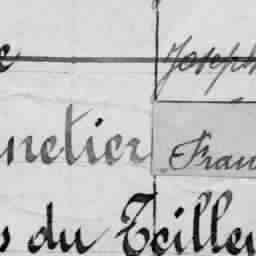 e Joseph
netier Fran
s du Teiller